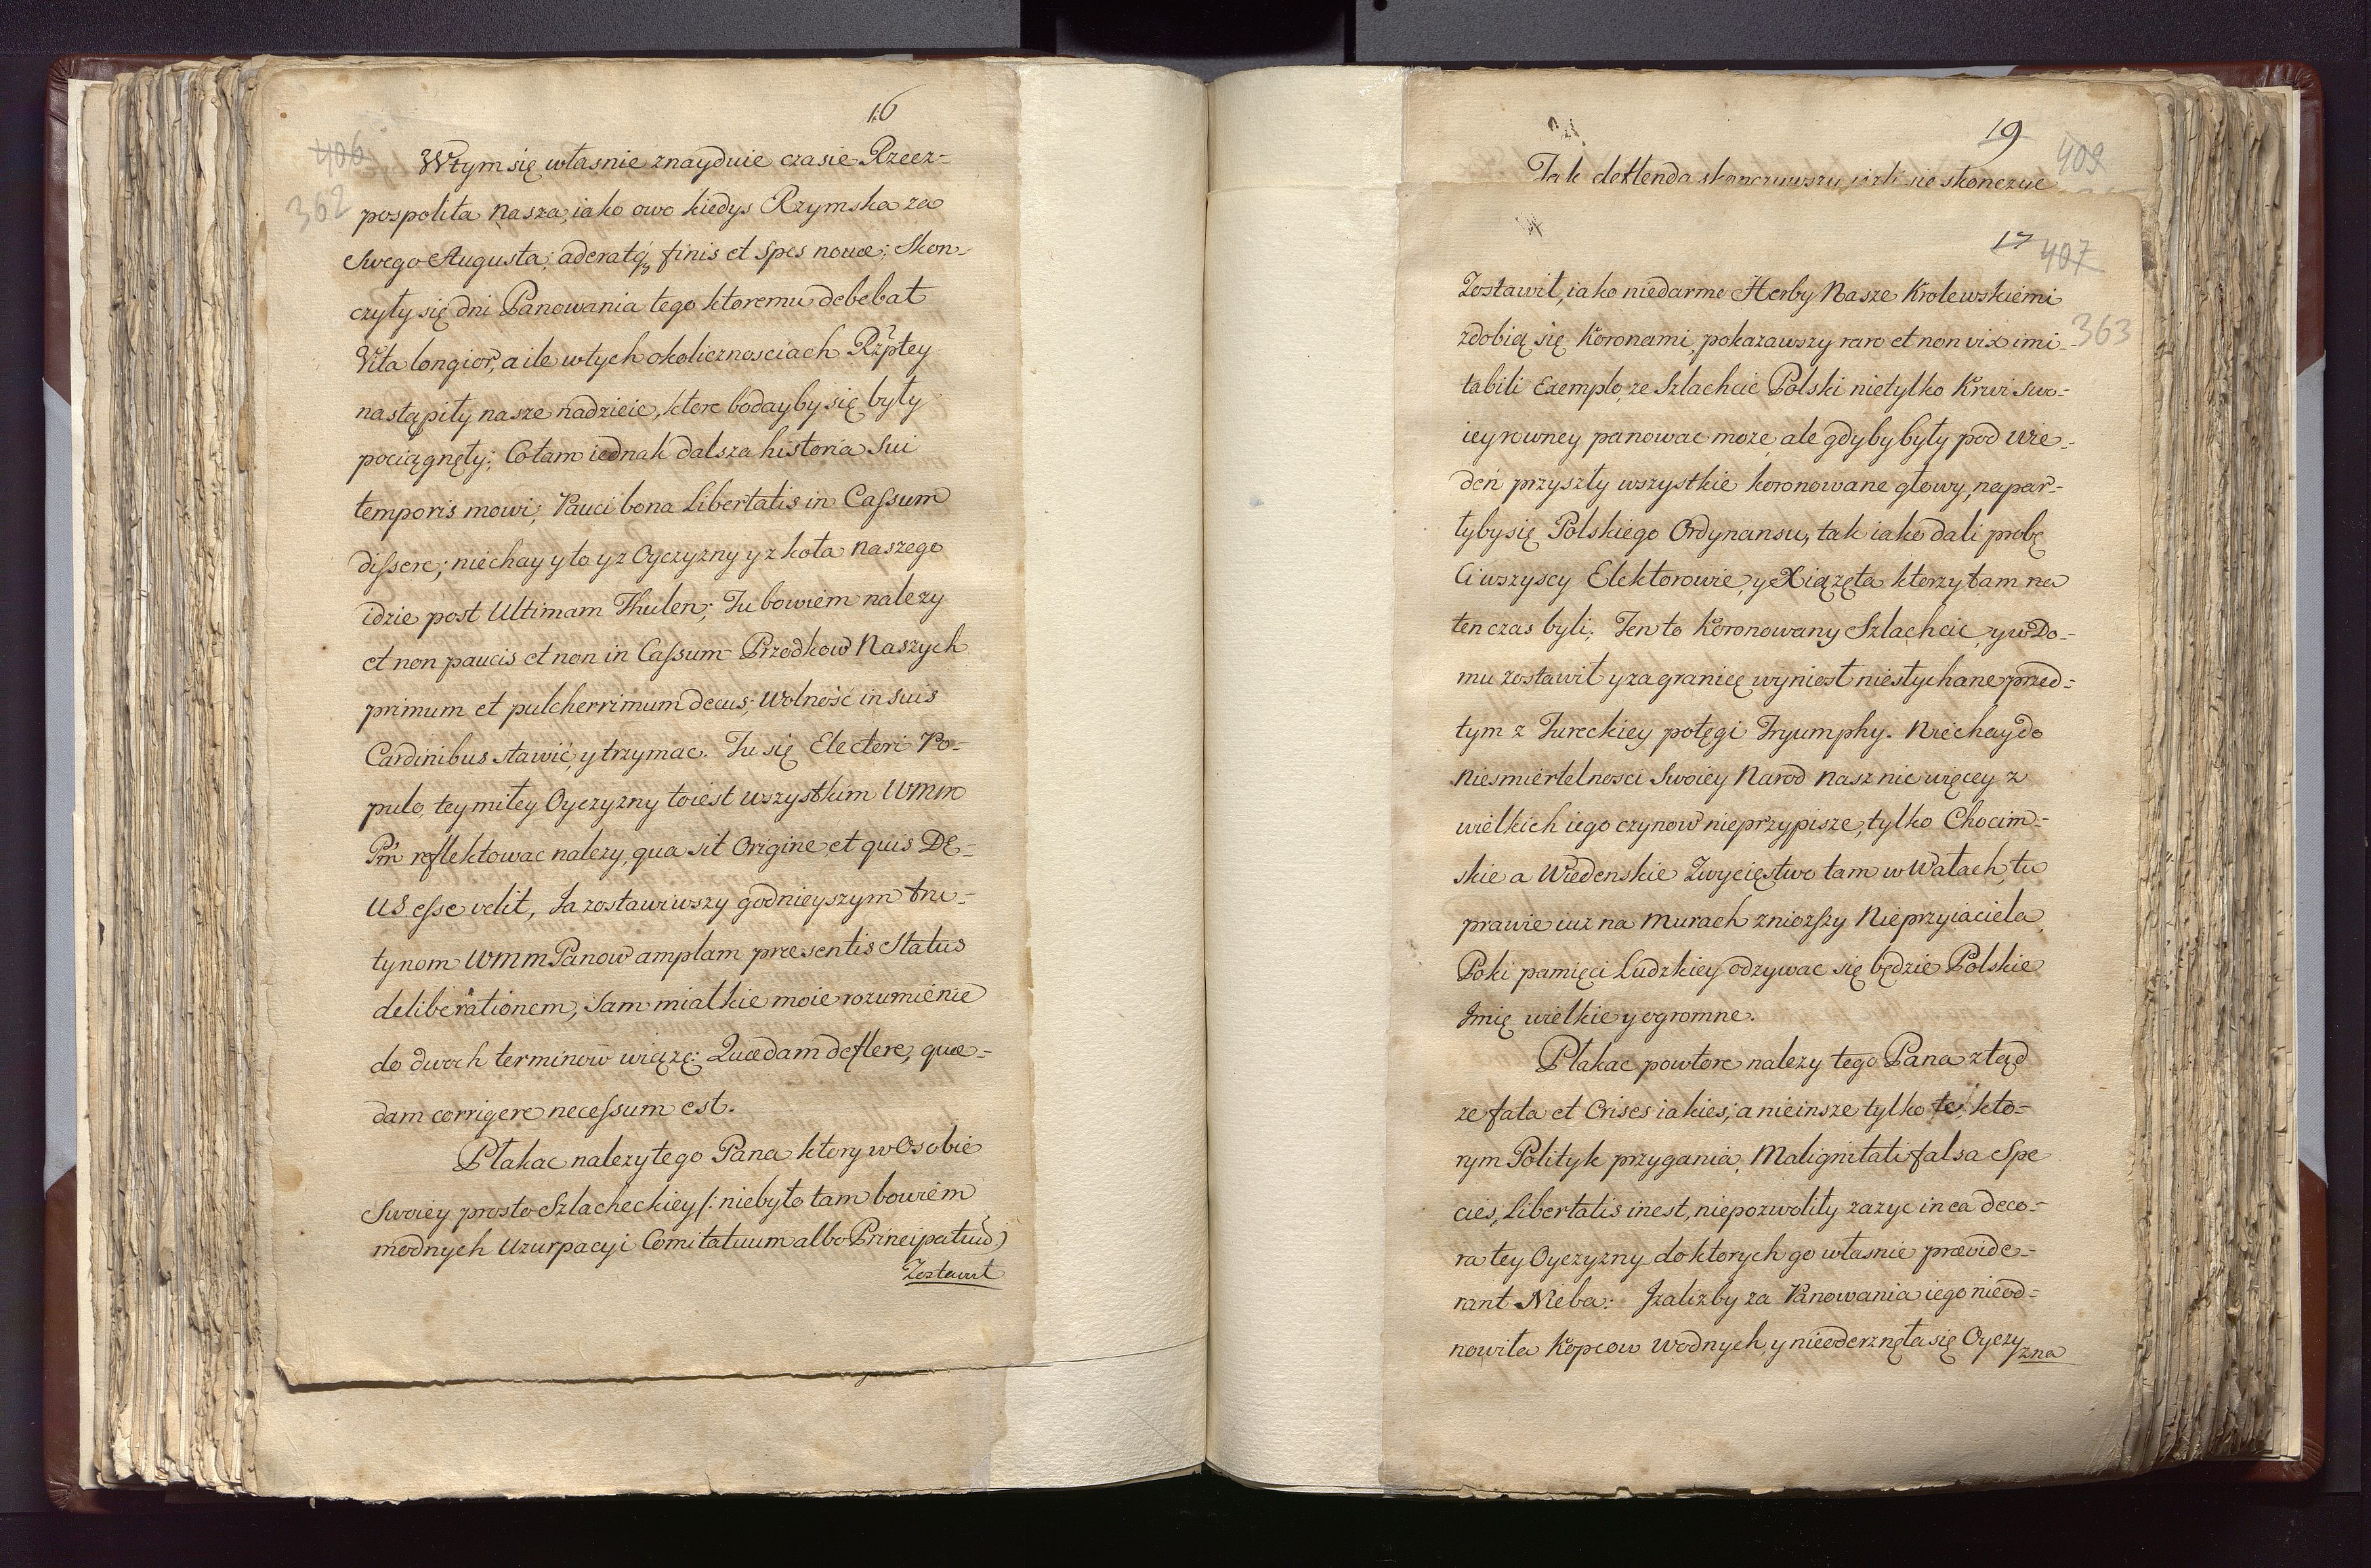 16
406
362
Wtym się własnie znayduie czasie Rzecz-
pospolita Nasza, iako owo kiedys Rzymska za
Swego Augusta; aderatq3 finis et Spes novæ; Skon-
czyły się dni Panowania tego ktoremu debebat
Vita longior, a ile wtych okolicznosciach Rzptey
nastąpiły nasze nadzieie, ktore bodayby się były
pociągnęły; Co tam iednak dalsza historia Sui
temporis mowi; Pauci bona Libertatis in Cassum
dissere; niechay y to y z Oyczyzny y z koła Naszego
idzie post Ultimam Thulen; Tu bowiem nalezy
et non paucis et non in Cassum Przodkow Naszych
primum et pulcherrimum decus; Wolność in suis
Cardinibus stawić, y trzymac. Tu się Electori Po-
pulo, tey miłey Oyczyzny toiest Wszystkim WMM
Pm̃ reflektowac nalezy, qua sit Origine, et quis DE-
US esse velit, Ja zostawiwszy godnieyszym tru-
tynom WMMPanow amplam præsentis Status
deliberationem, Sam miałkie moie rozumienie
do dwoch terminow wiązę: Quædam deflere, quæ-
dam corrigere necessum est.
Płakac nalezy tego Pana ktory w Osobie
Swoiey prosto Szlacheckiey /: niebyło tam bowiem
modnych Uzurpacyi Comitatuum albo Principatuũ)
Zostawił
19
409
Tak deflenda skonczywszy, iezli się skonczyc
17
407
363
Zostawił, iako niedarmo Herby Nasze Krolewskiemi
zdobią się Koronami, pokazawszy raro et non vix imi-
tabili Exemplo, ze Szlachcic Polski nietylko Krwi Swo-
iey rowney panowac moze, ale gdyby były pod Wie-
deń przyszły wszystkie koronowane głowy, napar-
łyby się Polskiego Ordynansu, tak iako dali probę
Ci wszyscy Elektorowie, y Xiązęta ktorzy tam na
ten czas byli; Ten to Koronowany Szlachcic, y w Do-
mu zostawił y za granicę wyniosł niesłychane przed-
tym z Tureckiey potęgi Tryumphy. Niechay do
Niesmiertelnosci Swoiey Narod Nasz nic więcey z
wielkich iego czynow nieprzypisze, tylko Chocim-
skie a Wiedenskie Zwycięstwo tam w Wałach, tu
prawie iuz na Murach zniozszy Nieprzyiaciela,
Poki pamięci Ludzkiey odzywac się będzie Polskie
Jmię wielkie y ogromne.
Płakac powtore nalezy tego Pana ztąd
ze fata et Crises iakies; a nieinsze tylko te, kto-
rym Polityk przygania, Malignitati falsa Spe
cies, Libertatis inest, niepozwoliły zazyc in ea deco-
ra tey Oyczyzny do ktorych go własnie prævide-
rant Nieba: Jzalizby za Panowania iego nieod-
nowiła Kopcow Wodnych, y nieoderznęła się Oyczy
zna